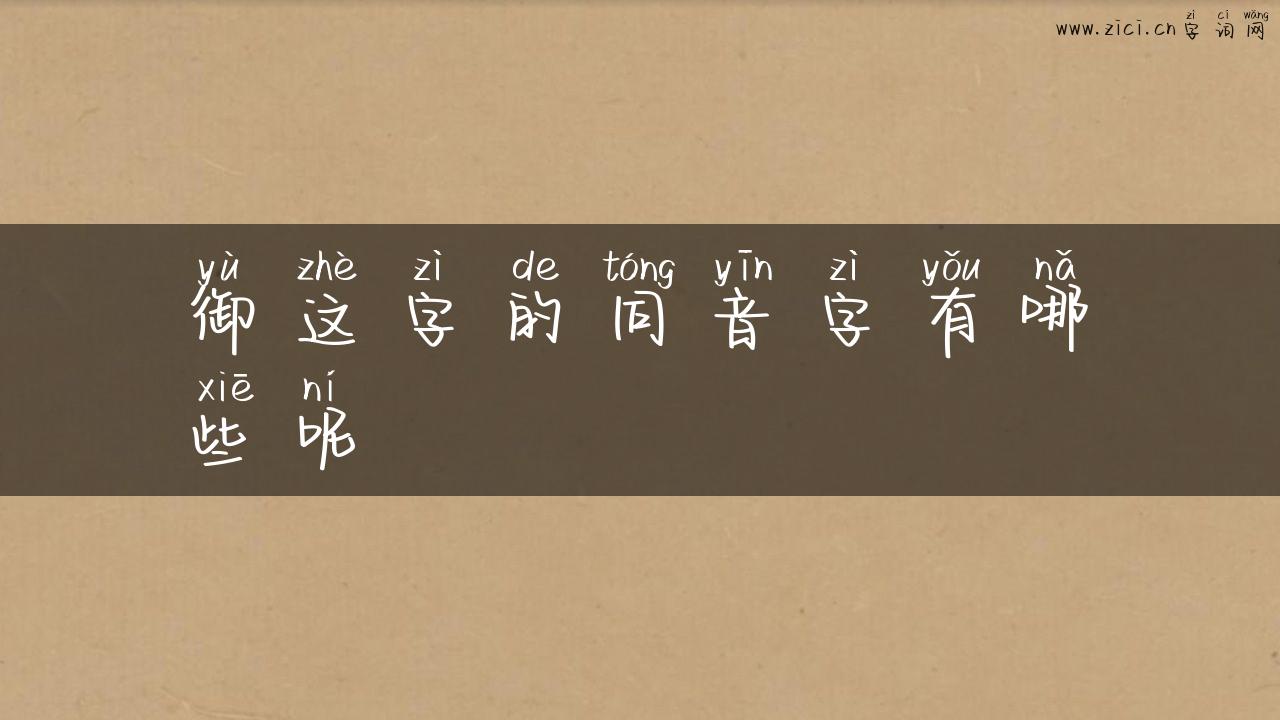 zì cí wǎng
www.zici.cn 字词网
yù zhè zì de tóng yīn zì yǒu nǎ
御这字的同音字有哪
xiē ní
些呢